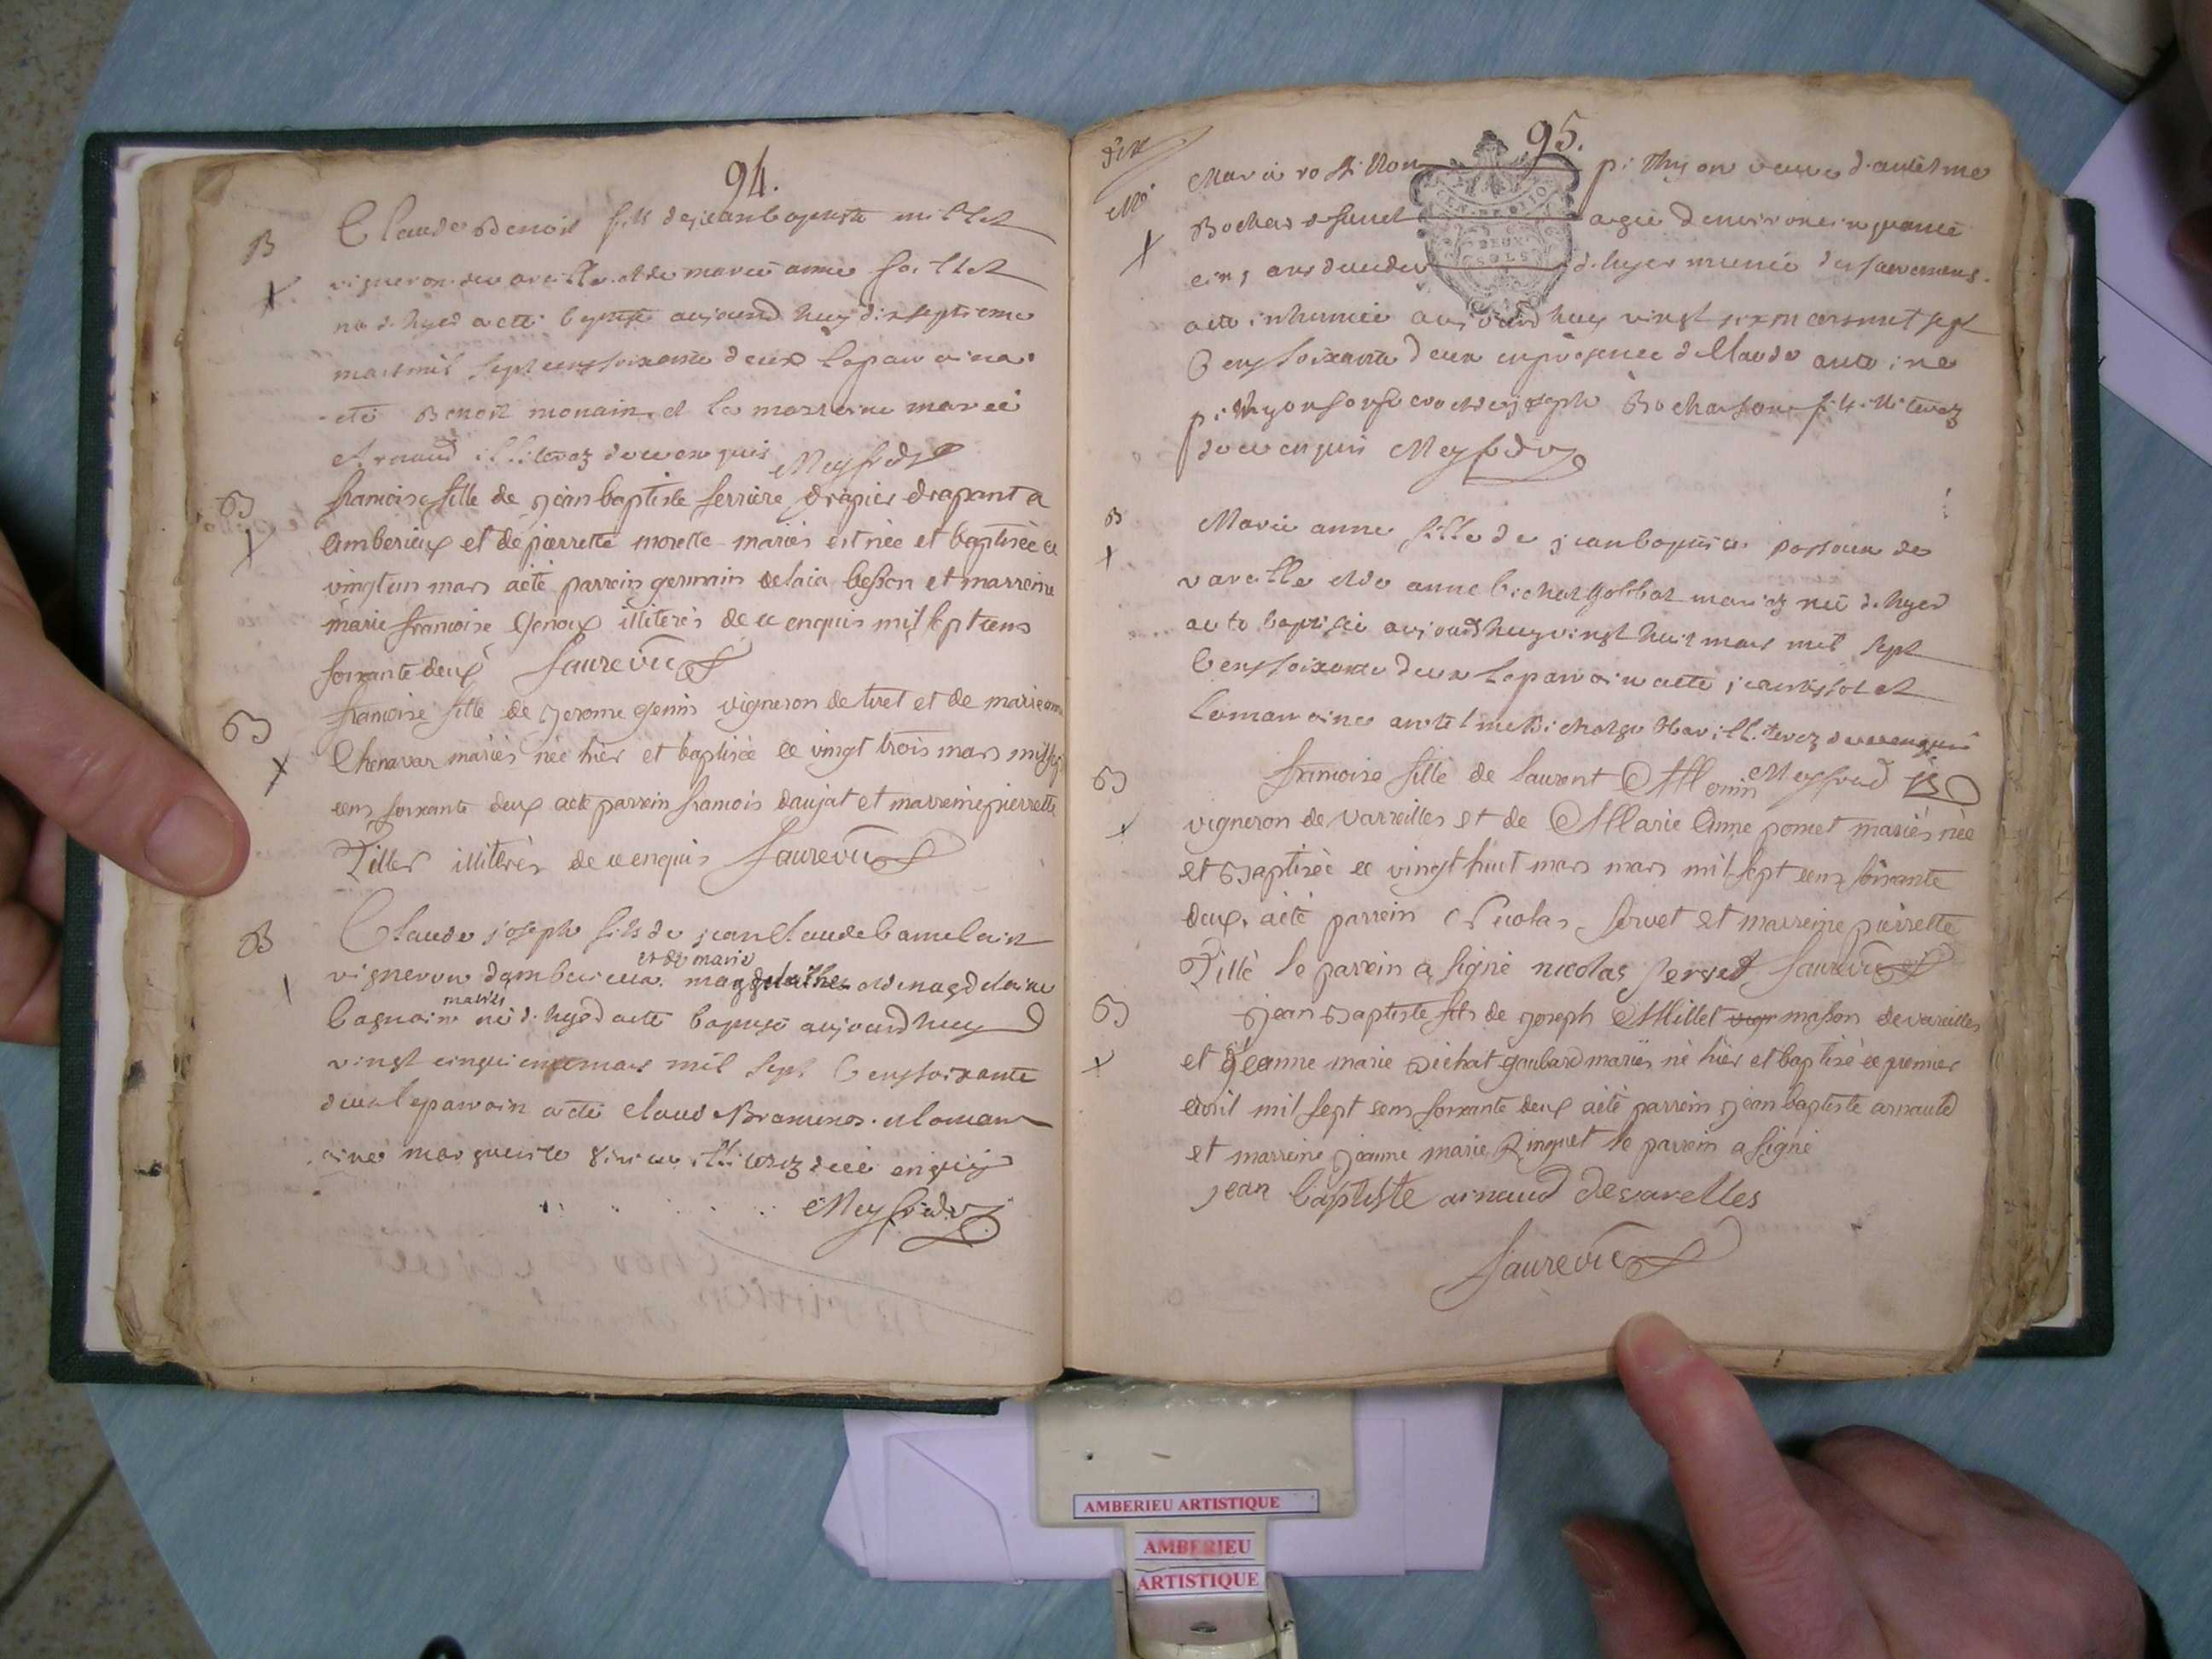 94.
B
Claude Benoit fils de jean baptiste millet
vigneron de vareille et de marie anne
né d'hyer a eté baptisé aujourd'huy dix septieme
mars mil sept cens soixante deux le parrain a
eté Benoit monain et la marreine marie
Arnaud illiterez de ce enquis Meyfredy
B
francoise fille de jean baptiste ferriere drapier drapant a
Amberieux et de pierrette morette mariés est née et baptisée ce
vingt un mars a èté parrein germain delaia besson et marreine
marie francoise Genoux illiterés de ce enquis mil sept cens
soixante deux faure vic
B
francoise fille de jerome genin vigneron de tiret et de marie anne
Chenavar mariés née hier et baptisée ce vingt trois mars mil sept
cens soixante deux a eté parrein francois daujat et marreine pierrette
Tiller illiterés de ce enquis faure vic
B
Claude joseph fils de jean Claude
et de marie
vigneron d'amberieux magdelaine
mariés
né d'hyer a eté baptisé aujourd'huy
vingt cinquieme mars mil sept Cens soixante
deux le parrain a eté Claude et la marr
aine marguerite illiterez de ce enquis
Meyfredy
95.
Marie pithyon veuve d'antelme
Bochar defunct agée d'environ cinquante
cinq ans d'hyer munie des sacremens
a eté inhumée aujourd'huy vingt six mars mil sept
Cens soixante deux en presence de Claude antoine
pithyon son frere et de joseph Bochar son fils illiterez
de ce enquis Meyfredy
B
Marie anne fille de jean baptiste de
vareille et de anne bichat mariez née d'hyer
a eté baptisée aujourd'huy vingt huit mars mil sept
Cens soixante deux le parrain a eté jean et
la marraine antelmette illiterez de ce enquis
Meyfredy
B
francoise fille de laurent Monin
vigneron de varreilles et de Marie Anne pomet mariés née
et Baptisée ce vingt huit mars mars mil sept cens soixante
deux. a èté parrein Nicolas servet et marreine pierrette
Tille le parrein a signé nicolas servet faure vic
B
Jean Baptiste fils de joseph Millet vigr masson de vareilles
et Jeanne marie Bichat goubard mariés né hier et baptisé ce premier
avril mil sept cens soixante deux a èté parrein jean baptiste arnaud
et marreine Jeanne marie Ringuet le parrein a signé
jean baptiste arnaud desvarelles
faure vic
AMBERIEU ARTISTIQUE
AMBERIEU
ARTISTIQUE